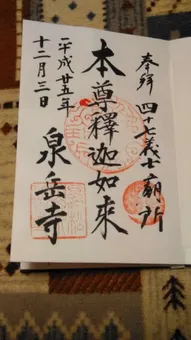 奉拜 四十七義士廟所
本尊釋迦如來
泉岳寺
平成廿五年
十二月三日